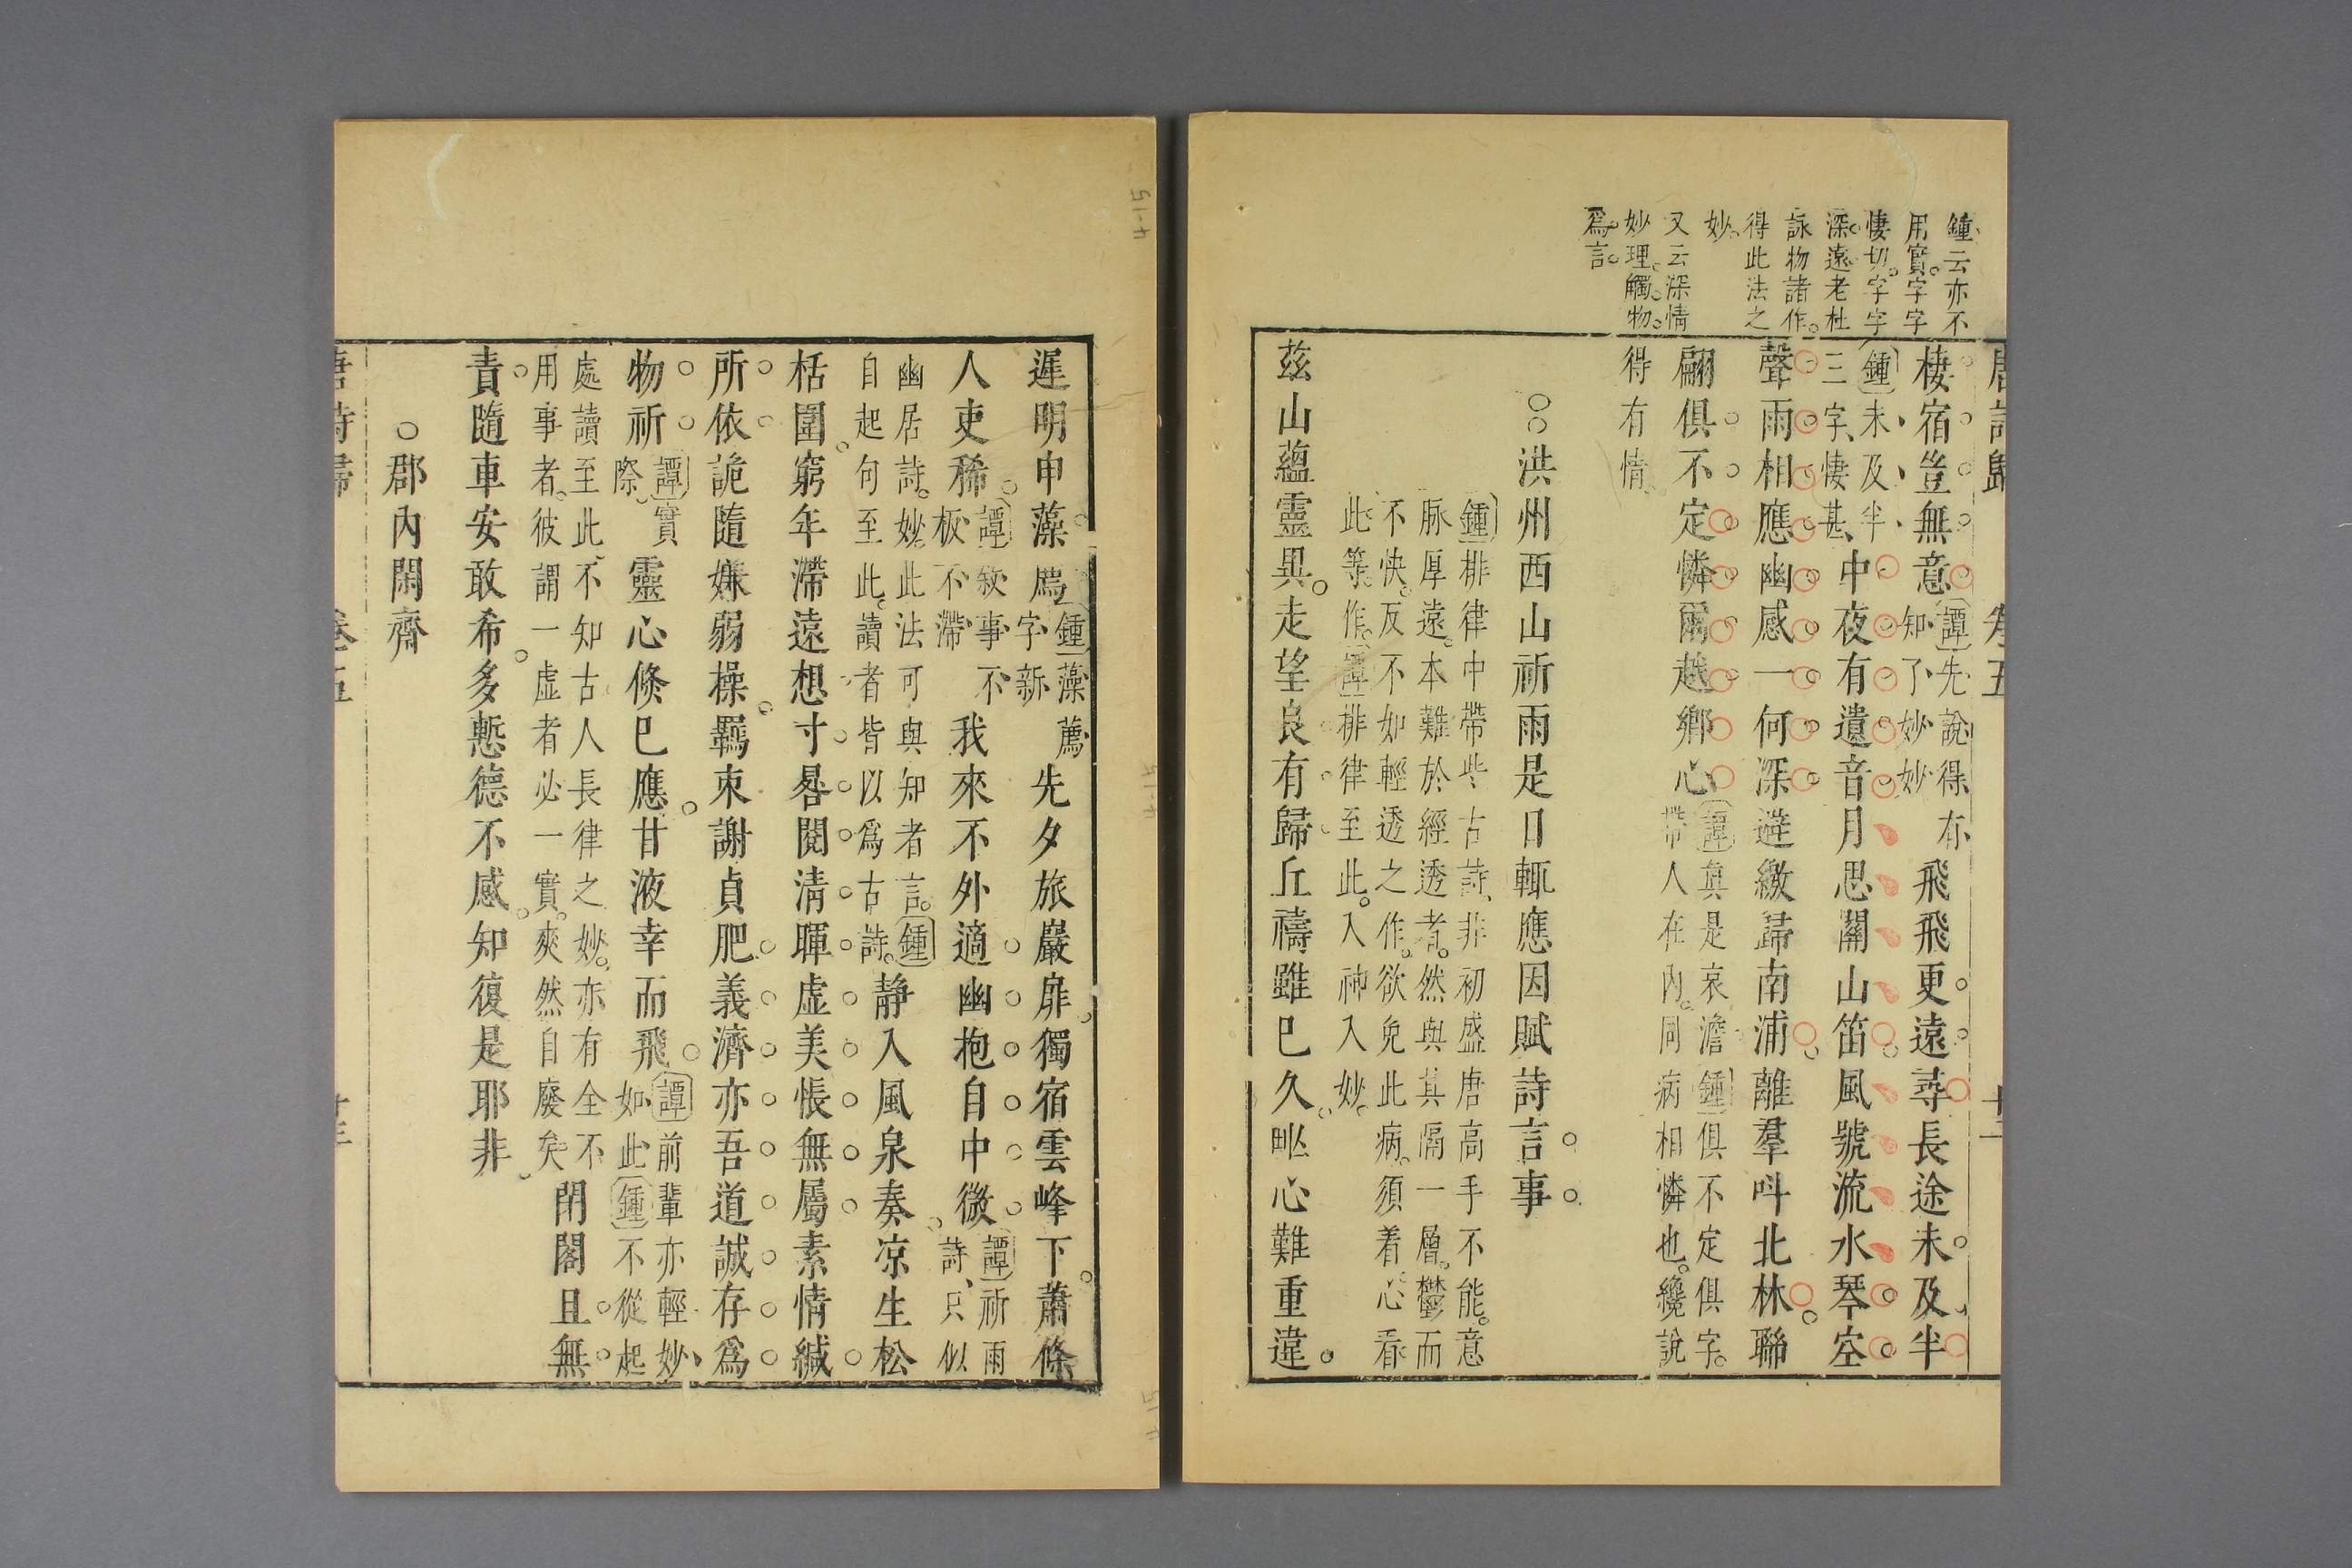 鍾云亦不
用實字字
悽切字字
深遠老杜
詠物諸作
得此法之
妙
又云深情
妙理觸物
爲言
唐詩歸 卷五 十二
棲宿豈無意譚先說得有知了妙妙飛飛更遠尋長途未及半
鍾未及半三字悽甚中夜有遺音月思關山笛風號流水琴空
聲雨相應幽感一何深避繳歸南浦離羣叫北林聯
翩俱不定憐爾越鄉心譚真是哀澹鍾俱不定俱字帶人在內同病相憐也纔說
得有情
洪州西山祈雨是日輒應因賦詩言事
鍾排律中帶些古詩非初盛唐高手不能意
脉厚遠本難於經透者然與其隔一層鬱而
不快反不如輕透之作欲免此病須着心看
此等作譚排律至此入神入妙
茲山蘊靈異走望良有歸丘禱雖已久甿心難重違
遲明申藻薦鍾藻薦字新先夕旅巖扉獨宿雲峰下蕭條
人吏稀譚敘事不板不滯我來不外適幽抱自中微譚祈雨詩只似
幽居詩妙此法可與知者言鍾自起句至此讀者皆以爲古詩靜入風泉奏凉生松
栝圍窮年滯遠想寸晷閱清暉虛美悵無屬素情緘
所依詭隨嫌弱操羈束謝貞肥義濟亦吾道誠存爲
物祈譚實際靈心倏已應甘液幸而飛譚前輩亦輕妙如此鍾不從起
處讀至此不知古人長律之妙亦有全不用事者彼謂一虛者必一實爽然自廢矣閉閣且無
責隨車安敢希多慙德不感知復是耶非
郡內閑齋
唐詩歸 卷五 十三